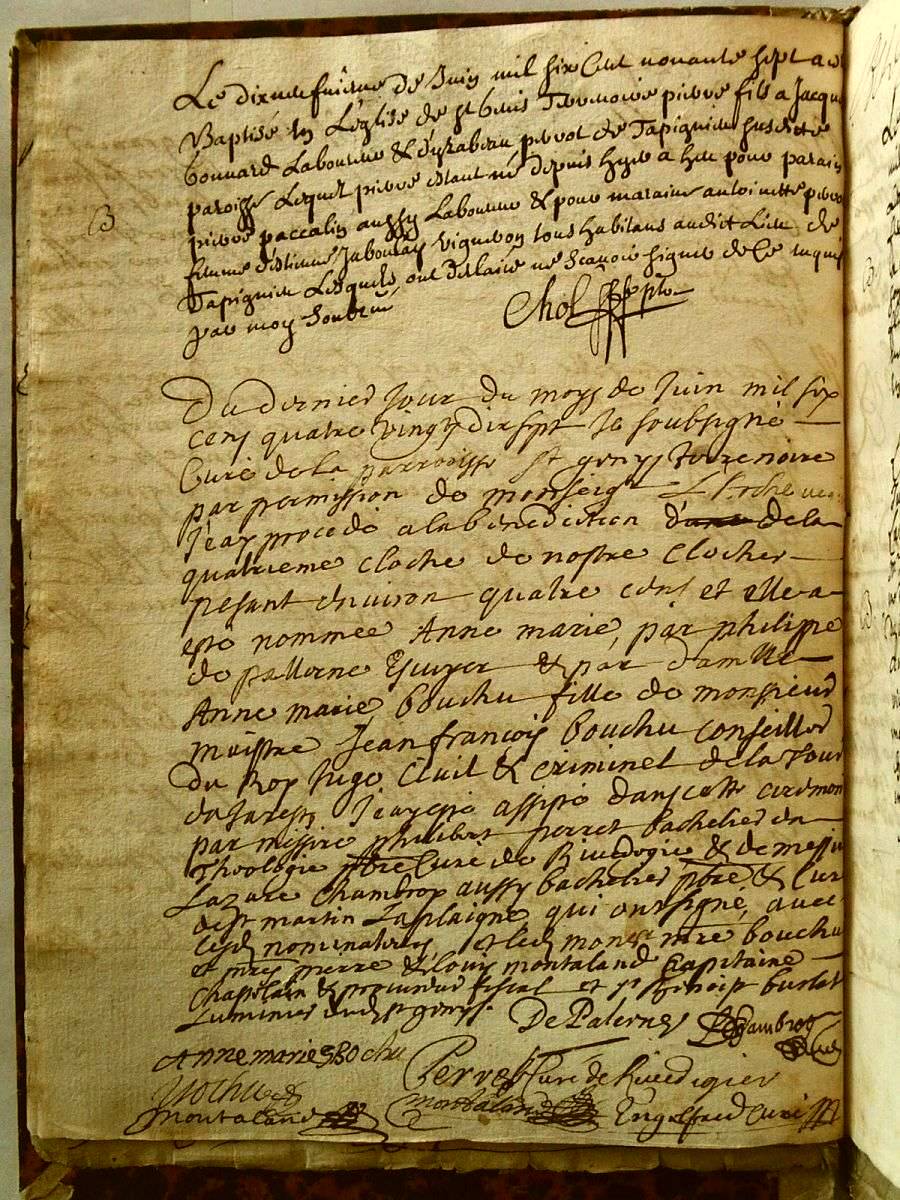 Le dixneufvieme de Juin mil six Cent nonante sept a esté
Baptisé en L'église de st Genis Terrenoire pierre fils a Jacque
bonnard Laboureur & d'yzabeau perrot de Tapignieu susdicte
paroisse Lequel pierre estant né depuis hyer a heu pour parain
pierre paccalin aussy Laboureur & pour maraine antoinette
femme d'estienne Jaboulay vigneron tous habitans audict Lieu de
Tapignieu Lesquels ont desclairé ne scavoir signer de ce requis
par moy Soubzné
Chol ptre
B
Du dernier Jour du moys de Juin mil six
cens quatre vingts dix sept Je soubsigné
Curé de la parroisse st genys terrenoire
par permission de monseigr L'Archeves
J'ay procedé a la benediction d'une de la
quatrieme cloche de nostre clocher
pesant environ quatre cens et elle a
esté nommee Anne marie, par philippe
de pallerne Escuyer & par damlle
Anne marie bouchu fille de monsieur
maistre Jean francois bouchu conseiller
du Roy Juge Civil & criminel de la Cour
de Jarests J'ay esté assisté dans cette ceremon
par messire philibert perret bachelier en
Theologie pbre Curé de Rivedogie & de messi
Lazare Chambrop aussy bachelier pbre & Cur
de st martin Laplaigne qui ont signé, avec
lesd nominateurs et led monsr mre bouchu
et mres pierre & Louis montaland Capitaine
Chastelain & procureur fiscal et sr benoist burlat
Luminier dud st genys.
De Palerne Chambrop
Curé
Anne marie Bochu
Perret Curé de Rivedigier
Bochu
montaland montaland Engelfred Curé